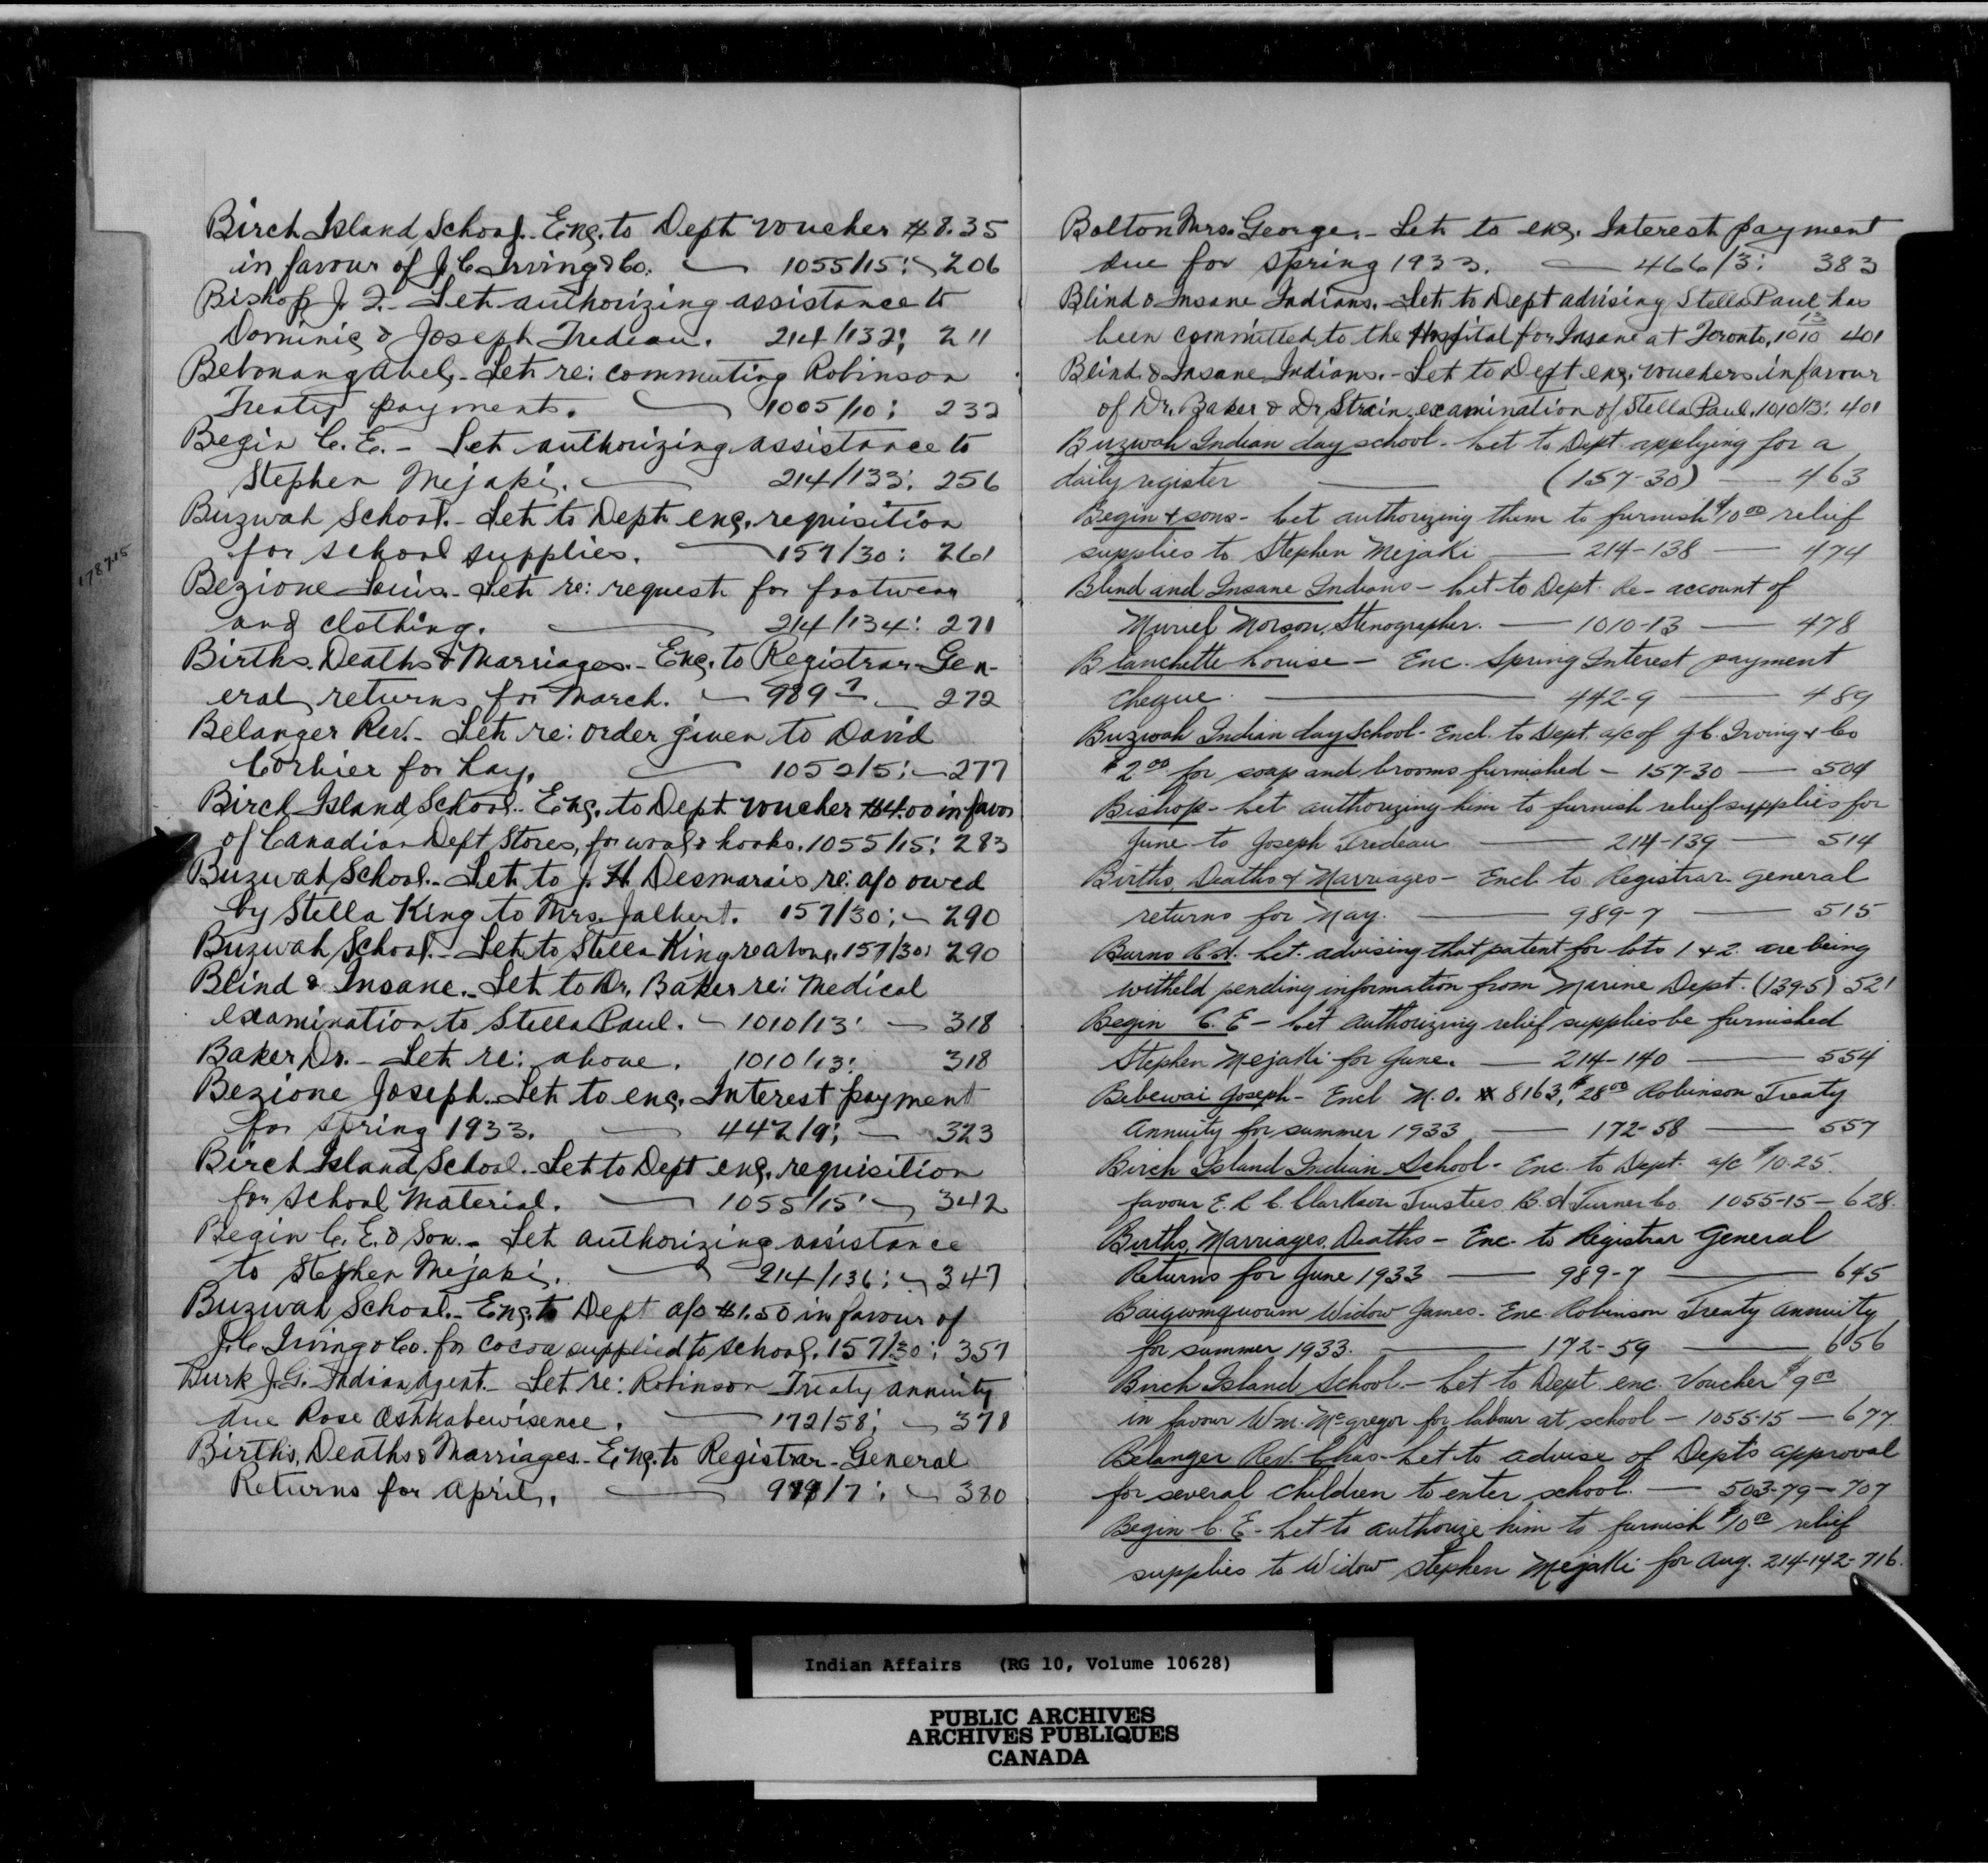 Birch Island School. Enc. to Dept voucher $8.35
in favour of J.C. Irving & Co. — 1055/15: — 206
Bishop J. F. - Let. authorizing assistance to
Dominic & Joseph Trudeau. 214/132: 211
Bebonang Abel. - Let. re: commuting Robinson
Treaty payments. — 1005/10: 232
Begin C. E. - Let. authorizing assistance to
Stephen Mejaki. — 214/133: 256
Buzwah School. - Let. to Dept. enc. requisition
for school supplies. — 157/30: 261
Bezione Louis. - Let. re: request for footwear
and clothing. — 214/134: 271
Births. Deaths & Marriages. - Enc. to Registrar-Gen-
eral, returns for March. — 989-7 — 272
Belanger Rev. - Let. re: order given to David
Corbier for hay. — 1052/5: — 277
Birch Island School. - Enc. to Dept voucher $4.00 in favor
of Canadian Dept Stores, for wool & hooks. 1055/15: 283
Buzwah School. - Let. to J. H. Desmarais re: a/c owed
by Stella King to Mrs. Jalbert. 157/30: — 290
Buzwah School. - Let. to Stella King re above. 157/30: 290
Blind & Insane. - Let. to Dr. Baker re: Medical
examination to Stella Paul. — 1010/13: — 318
Baker Dr. - Let. re: above. 1010/13: 318
Bezione Joseph. - Let. to enc. Interest payment
for spring 1933. — 442/9: — 323
Birch Island School. - Let to Dept enc. requisition
for School Material. — 1055/15: — 342
Begin C. E. & Son. - Let. authorizing assistance
to Stephen Mejaki. — 214/136: — 347
Buzwah School. - Enc. to Dept a/c $1.50 in favour of
J.C. Irving & Co. for cocoa supplied to school. 157/30: 357
Burk J.G. Indian Agent. - Let re: Robinson Treaty annuity
due Rose Oshkabewisence. — 172/58: — 378
Births, Deaths & Marriages. - Enc. to Registrar-General
Returns for April. — 989/7: — 380
Bolton Mrs. George. - Let. to enc. Interest payment
due for spring 1933. — 466/3: 383
Blind & Insane Indians. - Let. to Dept advising Stella Paul has
been committed to the Hospital for Insane at Toronto, 1010 13 401
Blind & Insane Indians. - Let to Dept enc. vouchers in favour
of Dr. Baker & Dr. Strain, examination of Stella Paul. 1010/13: 401
Buzwah Indian day school - Let to Dept. applying for a
daily register — (157-30) — 463
Begin & sons - Let authorizing them to furnish $10.00 relief
supplies to Stephen Mejaki — 214-138 — 474
Blind and Insane Indians - Let to Dept. Re - account of
Muriel Morson, Stenographer. — 1010-13 — 478
Blanchette Louise - Enc. Spring Interest payment
cheque. — 442-9 — 489
Buzwah Indian day School - Encl. to Dept. a/c of J.C. Irving & Co
$2.00 for soap and brooms furnished - 157-30 — 504
Bishop - Let authorizing him to furnish relief supplies for
June to Joseph Trudeau — 214-139 — 514
Births, Deaths & Marriages - Encl. to Registrar General
returns for May. — 989-7 — 515
Burns R.H. Let. advising that patent for lots 1 & 2. are being
witheld pending information from Marine Dept. (139-5) 521
Begin C. E - Let authorizing relief supplies be furnished
Stephen Mejaki for June. — 214-140 — 554
Bebewai Joseph - Encl M.O. # 8163, $28.00 Robinson Treaty
Annuity for summer 1933 — 172-58 — 557
Birch Island Indian School - Enc. to Dept. a/c $10.25.
favour E. R. C. Clarkson Trustees B. H Turner Co. 1055-15 — 628.
Births, Marriages, Deaths - Enc. to Registrar General
Returns for June 1933 — 989-7 — 645
Widow James - Enc. Robinson Treaty annuity
for summer 1933. — 172-59 — 656
Birch Island School. - Let to Dept. enc. Voucher $9.00
in favour Wm. McGregor for labour at school — 1055-15 — 677.
Belanger Rev. Chas - Let to advise of Dept's approval
for several children to enter school. — 503-79 — 707
Begin C. E - Let to authorize him to furnish $10.00 relief
supplies to Widow Stephen Mejaki for Aug. 214-142-716.
Indian Affairs (RG 10, Volume 10628)
PUBLIC ARCHIVES
ARCHIVES PUBLIQUES
CANADA